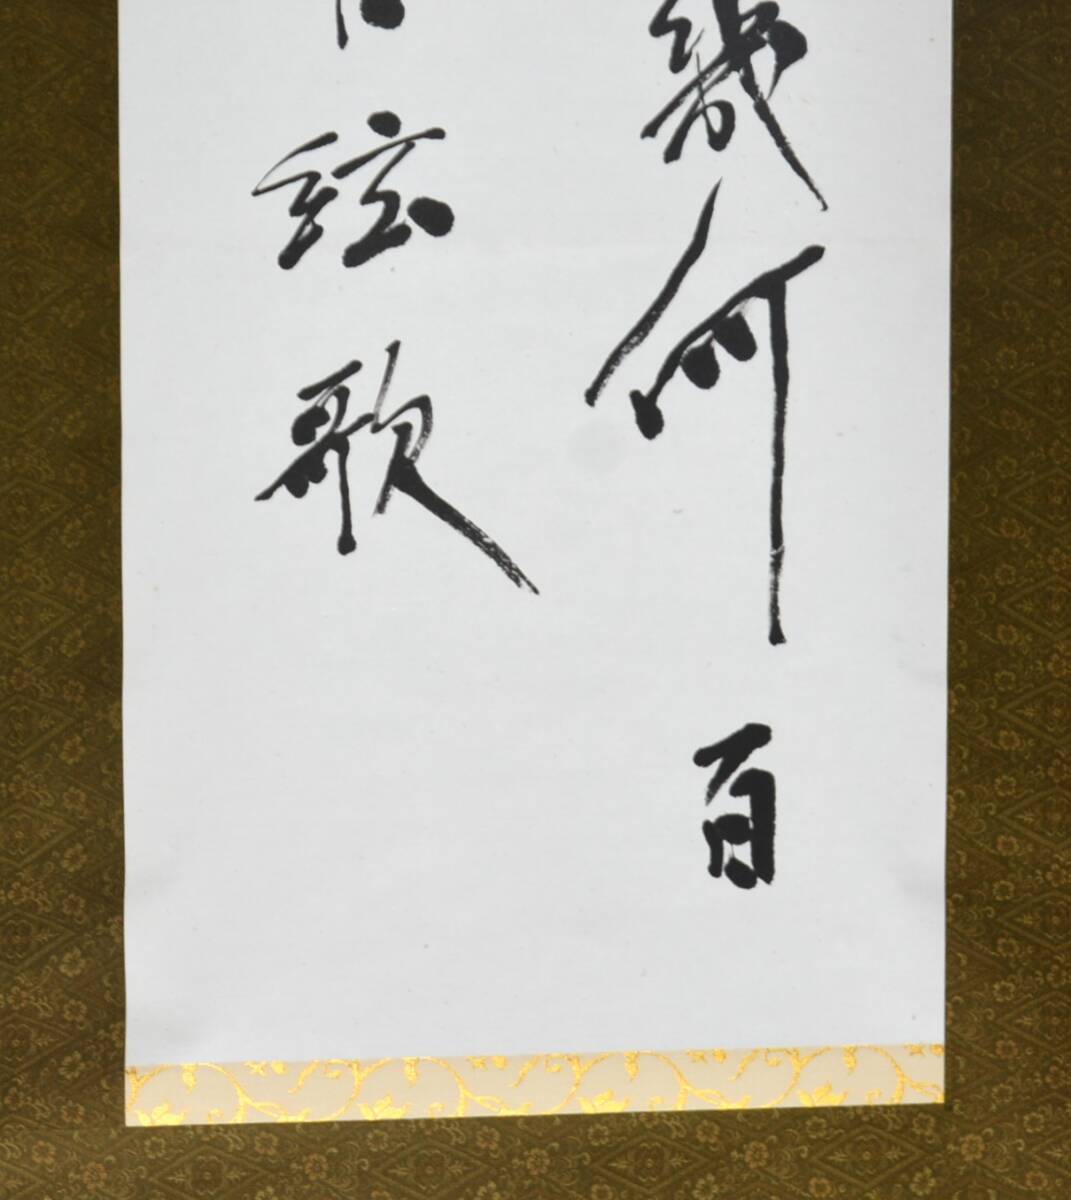 幾何百
絃歌